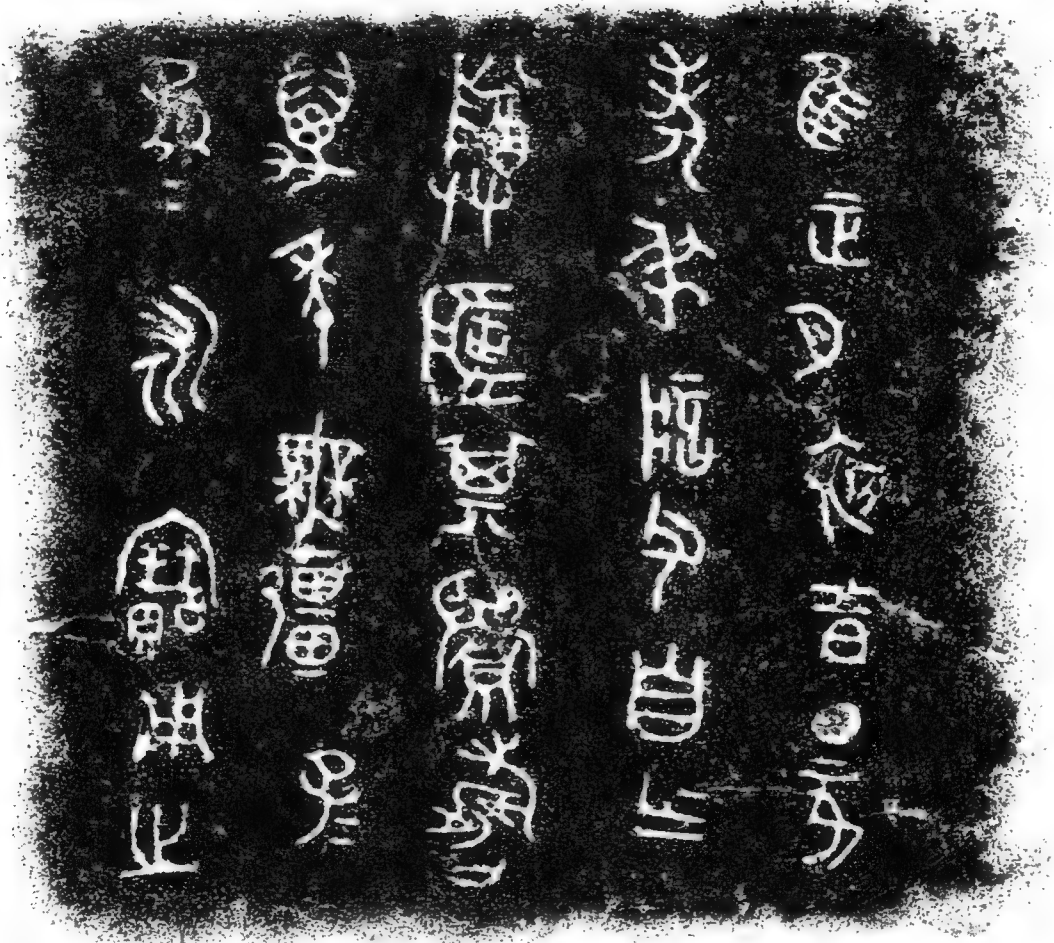 隹正月初吉丁亥
考叔𦣞父自乍
尊匠其眉壽
萬年無疆子=
孫=永寶用之